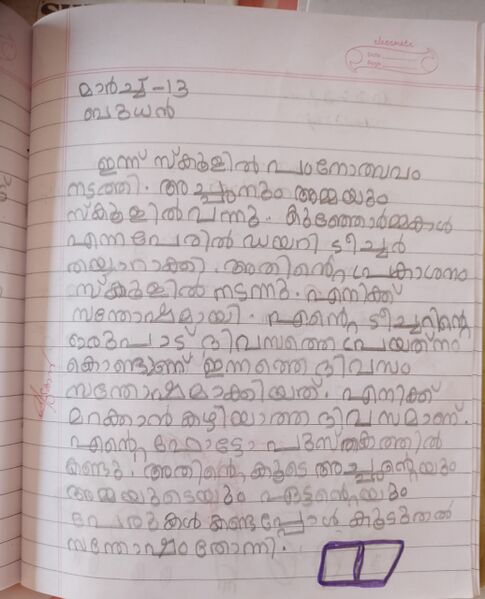 classmate
Date
Page
മാർച്ച് -13
ബുധൻ
ഇന്ന് സ്കൂളിൽ പഠനോത്സവം
നടത്തി. അച്ഛനും അമ്മയും
സ്കൂളിൽ വന്നു. കുഞ്ഞോർമ്മകൾ
എന്ന പേരിൽ ഡയറി ടീച്ചർ
തയ്യാറാക്കി. അതിന്റെ പ്രകാശനം
സ്കൂളിൽ നടന്നു. എനിക്ക്
സന്തോഷമായി. എന്റെ ടീച്ചറിന്റെ
ഒരുപാട് ദിവസത്തെ പ്രയത്നം
കൊണ്ടാണ് ഇന്നത്തെ ദിവസം
സന്തോഷമാക്കിയത്. എനിക്ക്
മറക്കാൻ കഴിയാത്ത ദിവസമാണ്.
എന്റെ ഫോട്ടോ പുസ്തകത്തിൽ
കണ്ടു. അതിന്റെ കൂടെ അച്ഛന്റെയും
അമ്മയുടെയും ഏട്ടന്റെയും
പേരുകൾ കണ്ടപ്പോൾ കൂടുതൽ
സന്തോഷം തോന്നി.